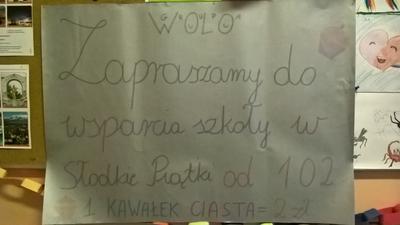 WOLO
Zapraszamy do
wsparcia szkoły w
Słodkie Piątki od 1.02
1 KAWAŁEK CIASTA = 2 zł